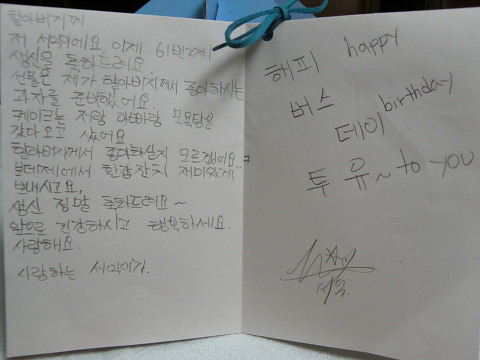 할아버지께
저 서익이에요. 이제 61번째
생신을 축하드려요.
선물은 제가 할아버지께서 좋아하시는
과자를 준비했어요.
케이크는 저랑 아빠랑 목욕탕을
갔다오고 샀어요
할아버지께서 좋아하실지 모르겠어요..ㅋ
보데제에서 한잠잔치 재미있게
보내시고요,
생신 정말 축하드려요~
앞으로 건강하시고 행복하세요.
사랑해요.
사랑하는 서익이가.
해피 happy
버스
데이 birthday
투 유~ to you